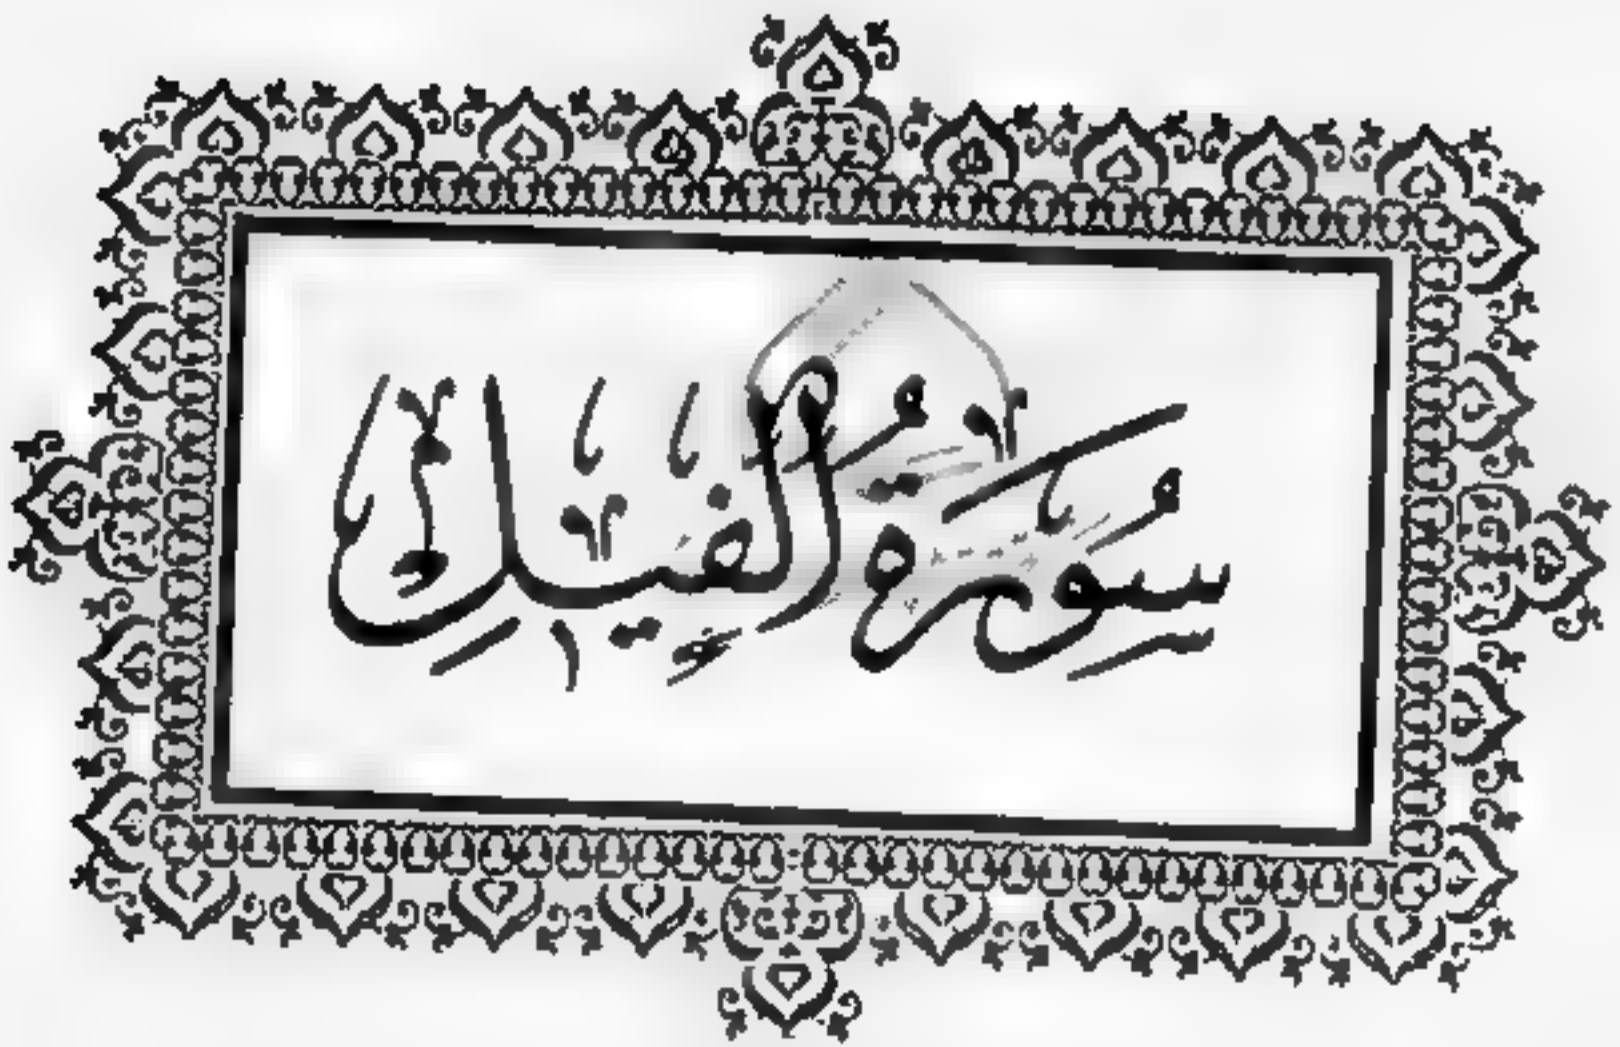 سُورَةُ الْفِيلِ